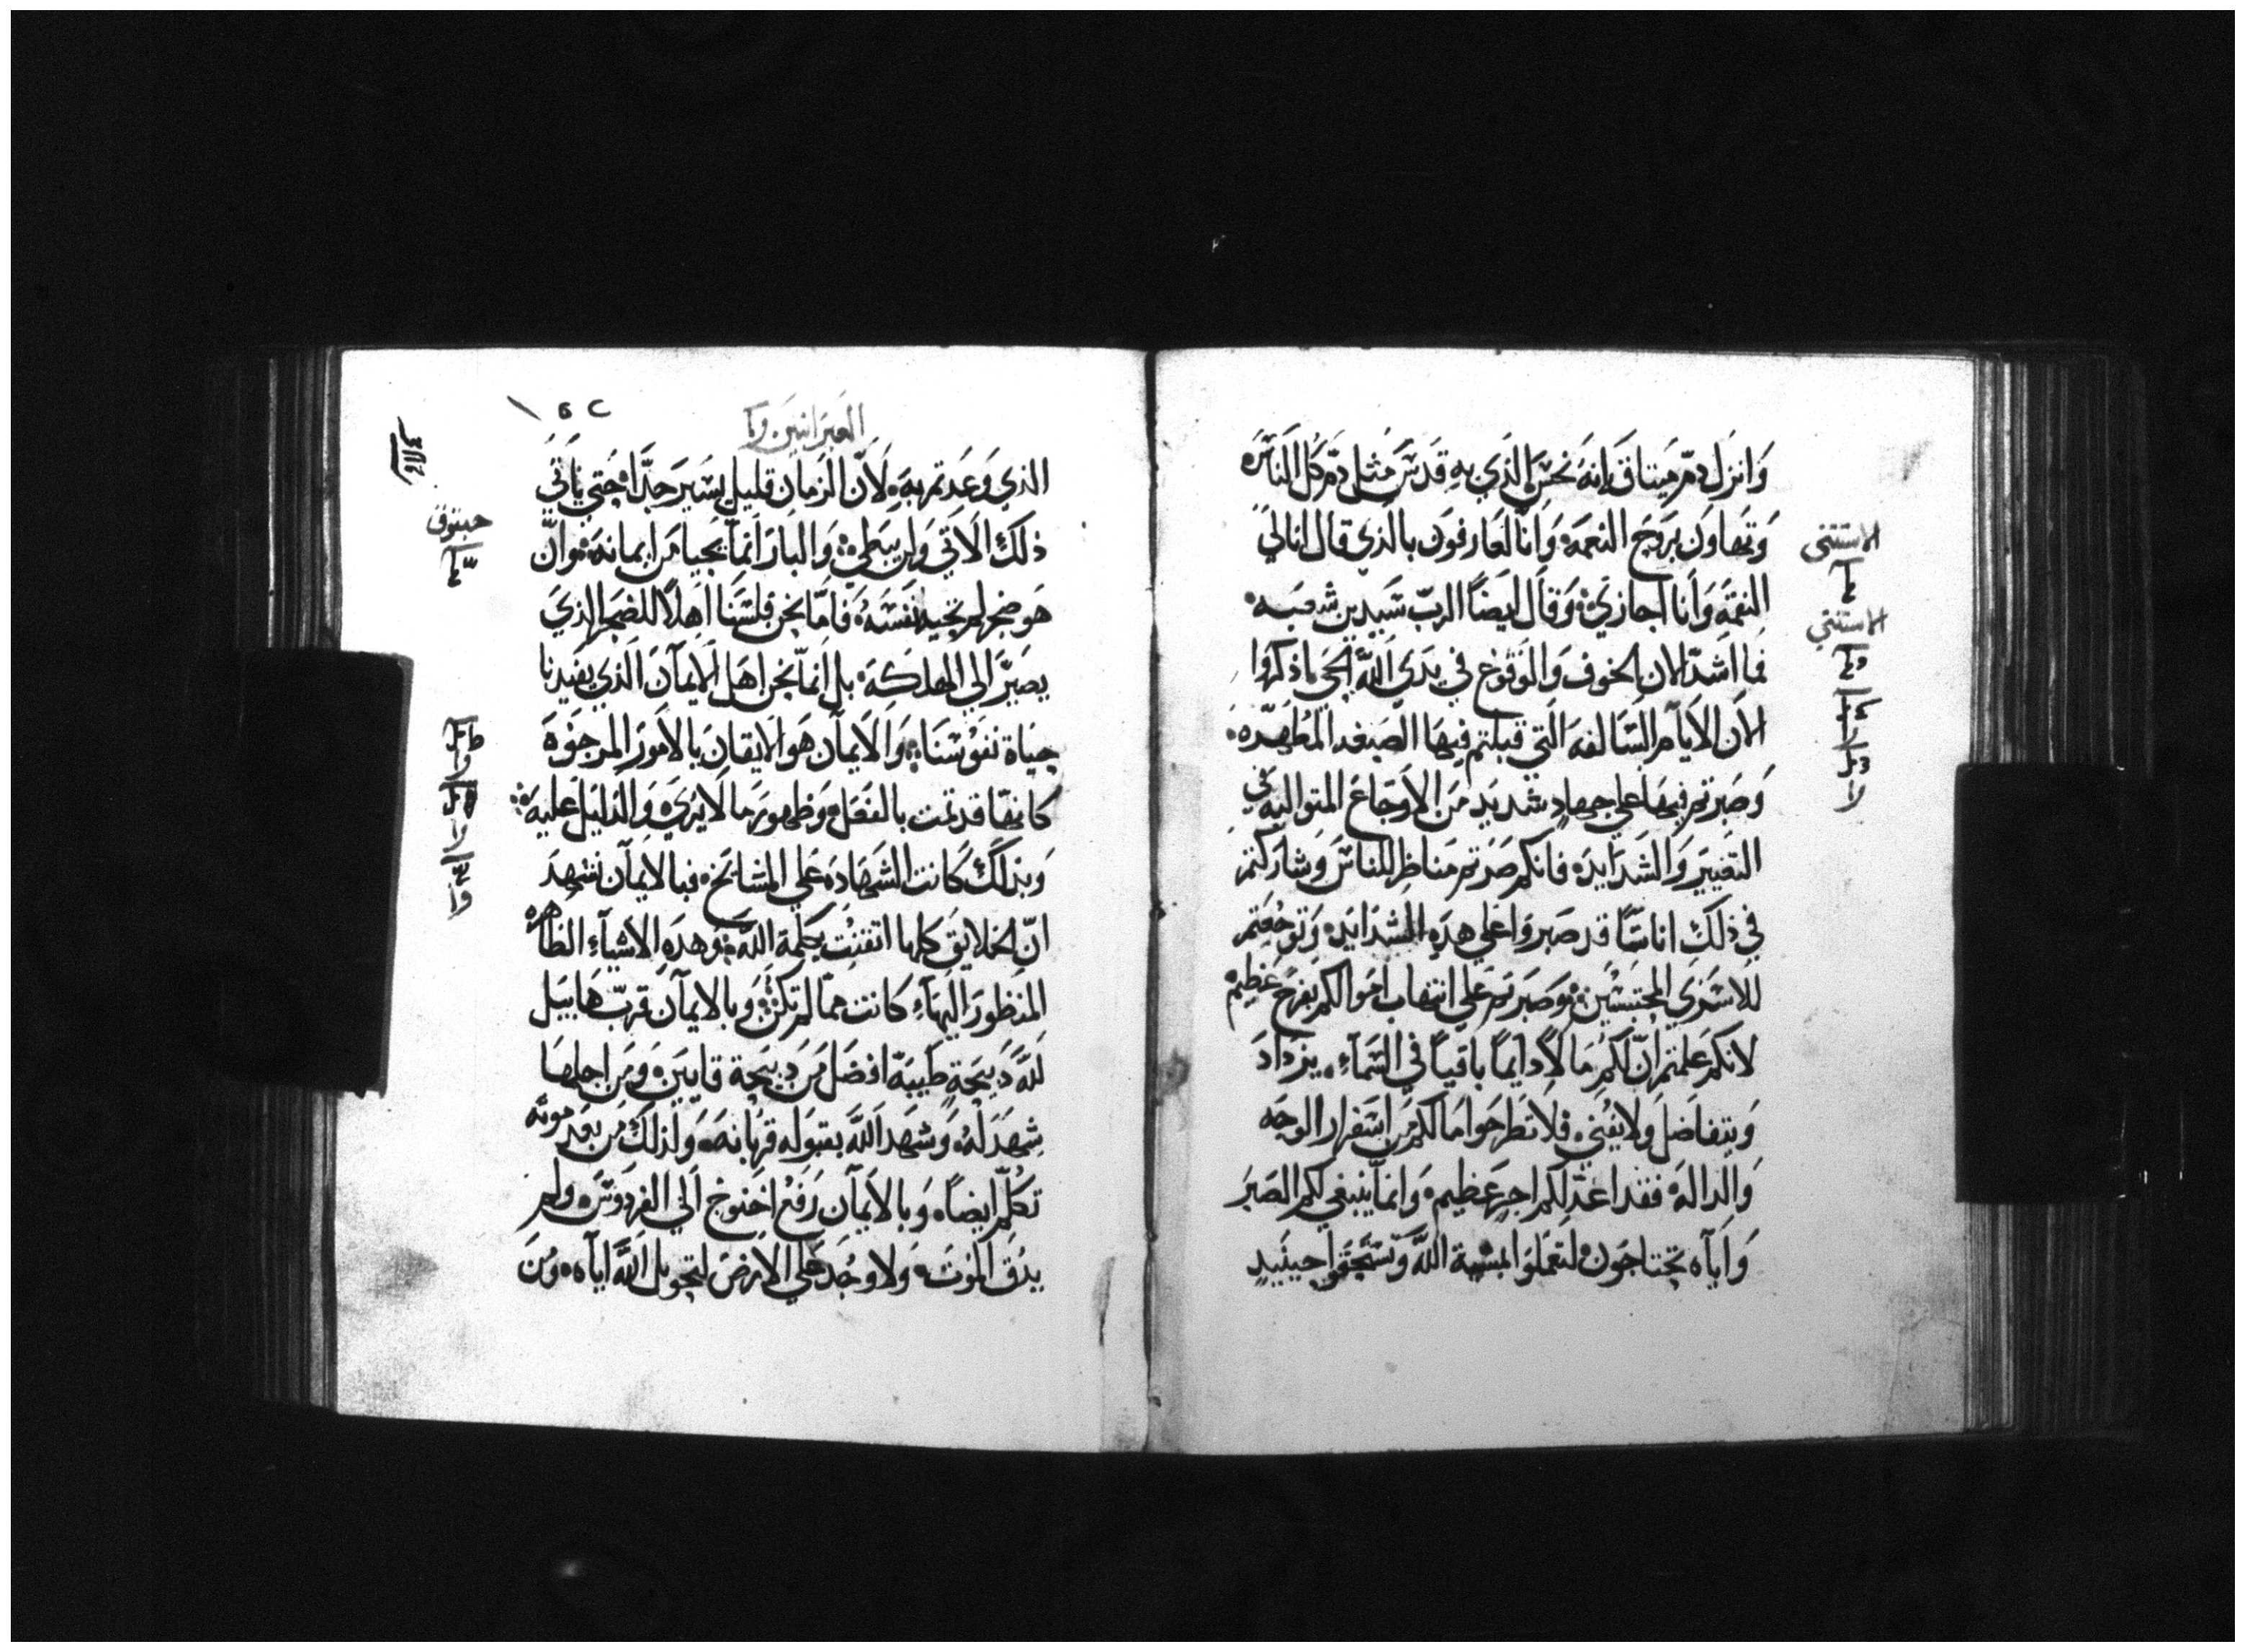 وَانزل دمّ ميتاق فإنهُ نحس الذي بهِ قدس مثل دمّ كل الناسَ
وَتهاون بروح النعمه وَانا لعارفون بالذي قال انا لي
النقمة وَانا اجازي وَقال ايضاً الربّ سيدين شعبه
فما اشدّ الان الخوف وَالوقوع في يدي اللّه الحي اذكروا
الان الايام السّالفه التي قبلتم فيها الصبغه المطهّره
وَصبرتم فيها علي جهاد شديد من الاوجاع المتواليه في
التعيير وَالشدايد فانكم صرتم مناظر للناس وَشاركتم
في ذلك اناسًا قد صبروا علي هذه الشدايد وَتوجعتم
للاسري المحتبسين وَصبرتم علي انتهاب اموالكم بفرح عظيم
لانكم علمتم انّ لكم مالاً دايماً باقياً في السّماء يزداد
وَيتفاضل وَلا يفني فلا تطرحوا مالكم من اسفرار الوجه
وَالداله فقد اعدّ لكم اجر عظيم وَانما ينبغي لكم الصبر
وَاياه تحتاجون لتعملوا بمشية اللّه وَتستحقوا حينيدٍ
الاستثني
الاستثني
العبرانيين
الذي وَعدتم به لانّ الزمان قليل يسير جدّاً حتي ياتي
ذلك الاتي وَلن يبطي وَالبار انما يحيا من ايمانه وانّ
هو ضجر لم تحبه نفسهُ فامّا نحن فلسنا اهلاً للضجر الذي
يصيّر الي الهلكه بل انمّا نحن اهل الايمان الذي يفيدنا
حياة نفوسنا وَالايمان هو الايقان بالامور المرجوه
كانها قد تمت بالفعل وَظهور ما لا يري وَالدليل عليه
وَبذلك كانت الشهاده علي المشايخ فبالايمان نشهد
انّ الخلايق كلها اتقنت بكلمة اللّه وهذه الاشياء الظاهره
المنظور اليهاء كانت ممّا لم تكن وَبالايمان قرّب هابيل
للّه دبيحة طيبة افضل من دبيحة قايين وَمن اجلها
شهد لهُ وَشهد اللّه بقبوله قربانه وَلذلك من بعد موته
تكلّم ايضاً وَبالايمان رفع اخنوخ الي الفردوس ولم
يدق الموت وَلا وجد علي الارض لتحويل اللّه اياه وَمن
حبقوق